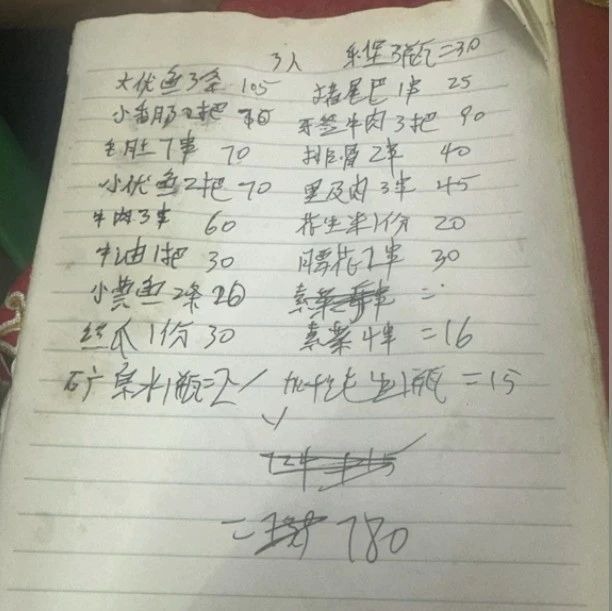 3人 乐堡3瓶=30
大优鱼3条 105 猪尾巴1串 25
小香肠2把 牙签牛肉3把 90
毛肚7串 70 排骨2串 40
小优鱼2把 70 里及肉3串 45
牛肉3串 60 花生米1份 20
牛油1把 30 腰花2串 30
小黄鱼2条 26
丝瓜1份 30 素菜4串 =16
矿泉水1瓶=2 加多宝1瓶 =15
= 780